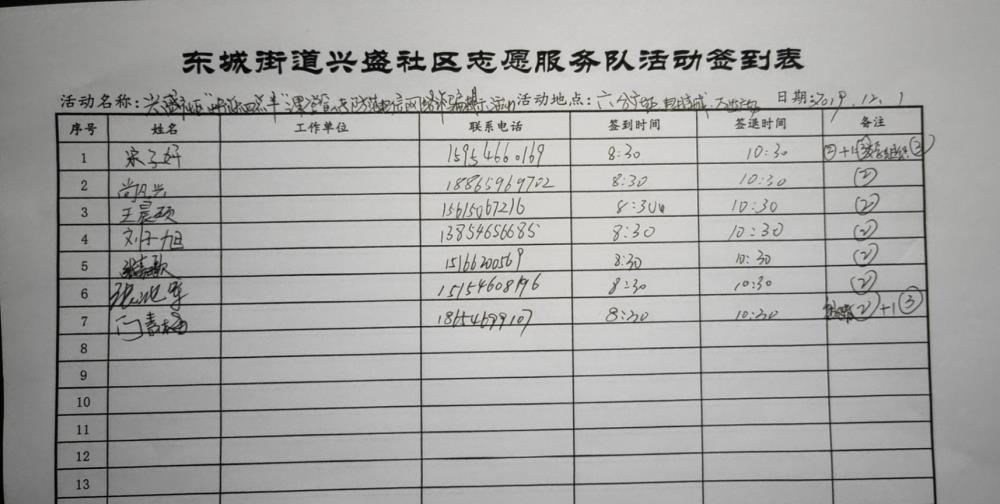 东城街道兴盛社区志愿服务队活动签到表
活动名称: 兴盛社区 课堂 防范电信网络诈骗 活动 活动地点: 六分场 日期: 2019.12.1
序号 姓名 工作单位 联系电话 签到时间 签退时间 备注
1 宋子妤 15954660169 8:30 10:30 ② +1 ③
2 尚凡兴 18865969702 8:30 10:30 ②
3 王晨硕 15615067216 8:30 10:30 ②
4 刘子旭 13854656685 8:30 10:30 ②
5 15166200569 8:30 10:30 ②
6 15154608196 8:30 10:30 ②
7 18654699107 8:30 10:30 ② +1 ③
8
9
10
11
12
13